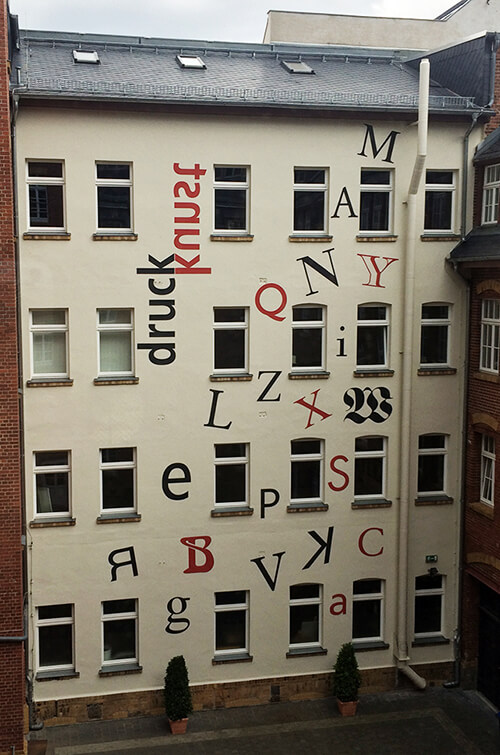 druck
kunst
M
A
N Y
Q
i
Z
L X W
e S
P
R B V K C
g a